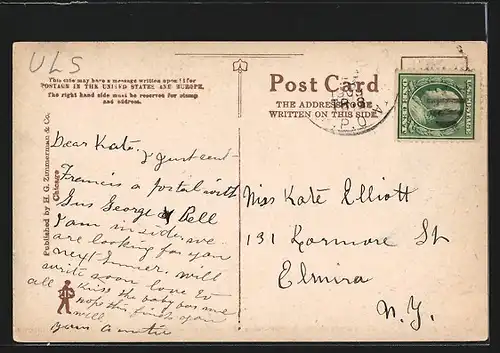 ULS
This side may have a message written upon it for
POSTAGE IN THE UNITED STATES AND EUROPE.
The right hand side must be reserved for stamp
and address.
Published by H. G. Zimmerman & Co.
Chicago
Post Card
THE ADDRESS TO BE
WRITTEN ON THIS SIDE
1909
U.S. POSTAGE
Dear Kate. I just sent
Francis a postal with
Gus George & Bell
I am inside we
are looking for you
next summer. will
write soon love to
all kiss the baby for me
hope this finds you
well
your auntie
Miss Kate Elliott
131 Lormore St
Elmira
N.Y.